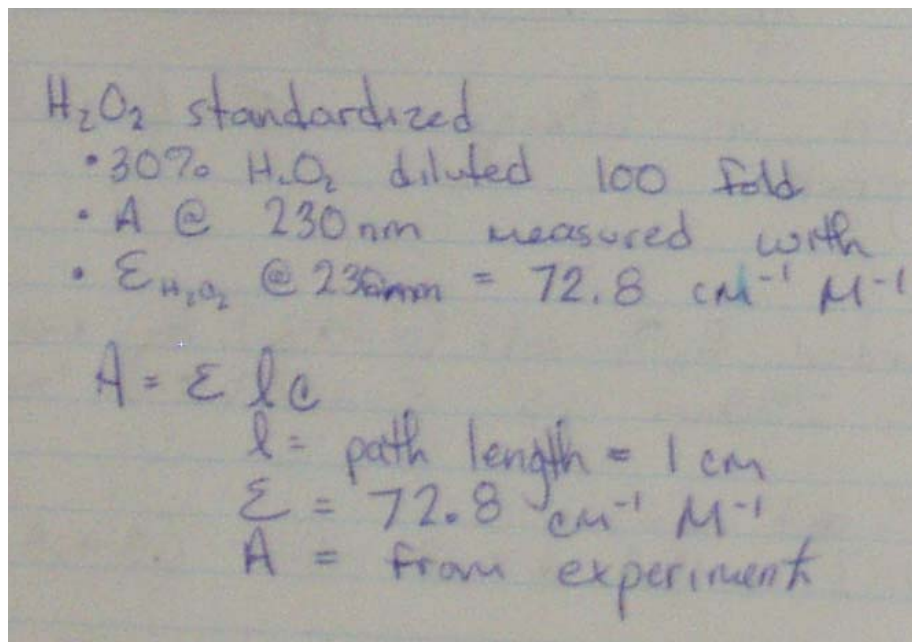 H₂O₂ standardized
• 30% H₂O₂ diluted 100 fold
• A @ 230nm measured with
• Ɛ H₂O₂ @ 230nm = 72.8 cm⁻¹ M⁻¹
A = Ɛ l c
l = path length = 1 cm
Ɛ = 72.8 cm⁻¹ M⁻¹
A = from experiment